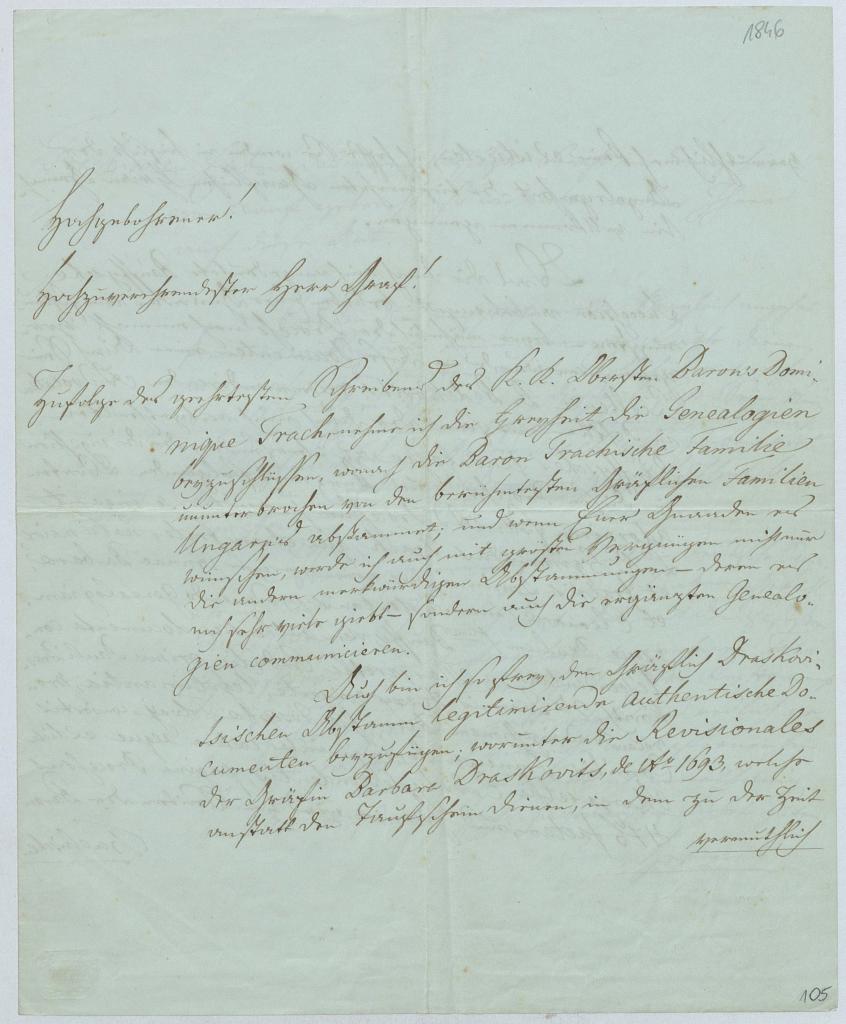 1846
Hochgebohrener!
Hochzuverehrendister Herr Graf!
Zufolge des geehrtesten Schreibens des K. K. Obersten Baron's Domi-
nique Trach nehme ich die Freyheit die Genealogien
beyzuschlüssen, wonach die Baron Trachische Familie
ununterbrochen von den berühmtesten Gräflichen Familien
Ungarn's abstammet; und wenn Euer Gnaaden es
wünschen, werde ich auch mit grösten Vergnügen nicht nur
die andern merkwürdigen Abstammungen – deren es
noch sehr viele giebt – sondern auch die ergänzten Genealo-
gien communicieren.
Auch bin ich so frey, den Gräflich Draskovi-
tsischen Abstamm legitimirende authentische Do-
cumenten beyzufügen; worunter die Revisionales
der Gräfin Barbara Draskovits, de Ao 1693, welche
anstatt den Taufschein dienen, in dem zu der Zeit
vermuthlich
105